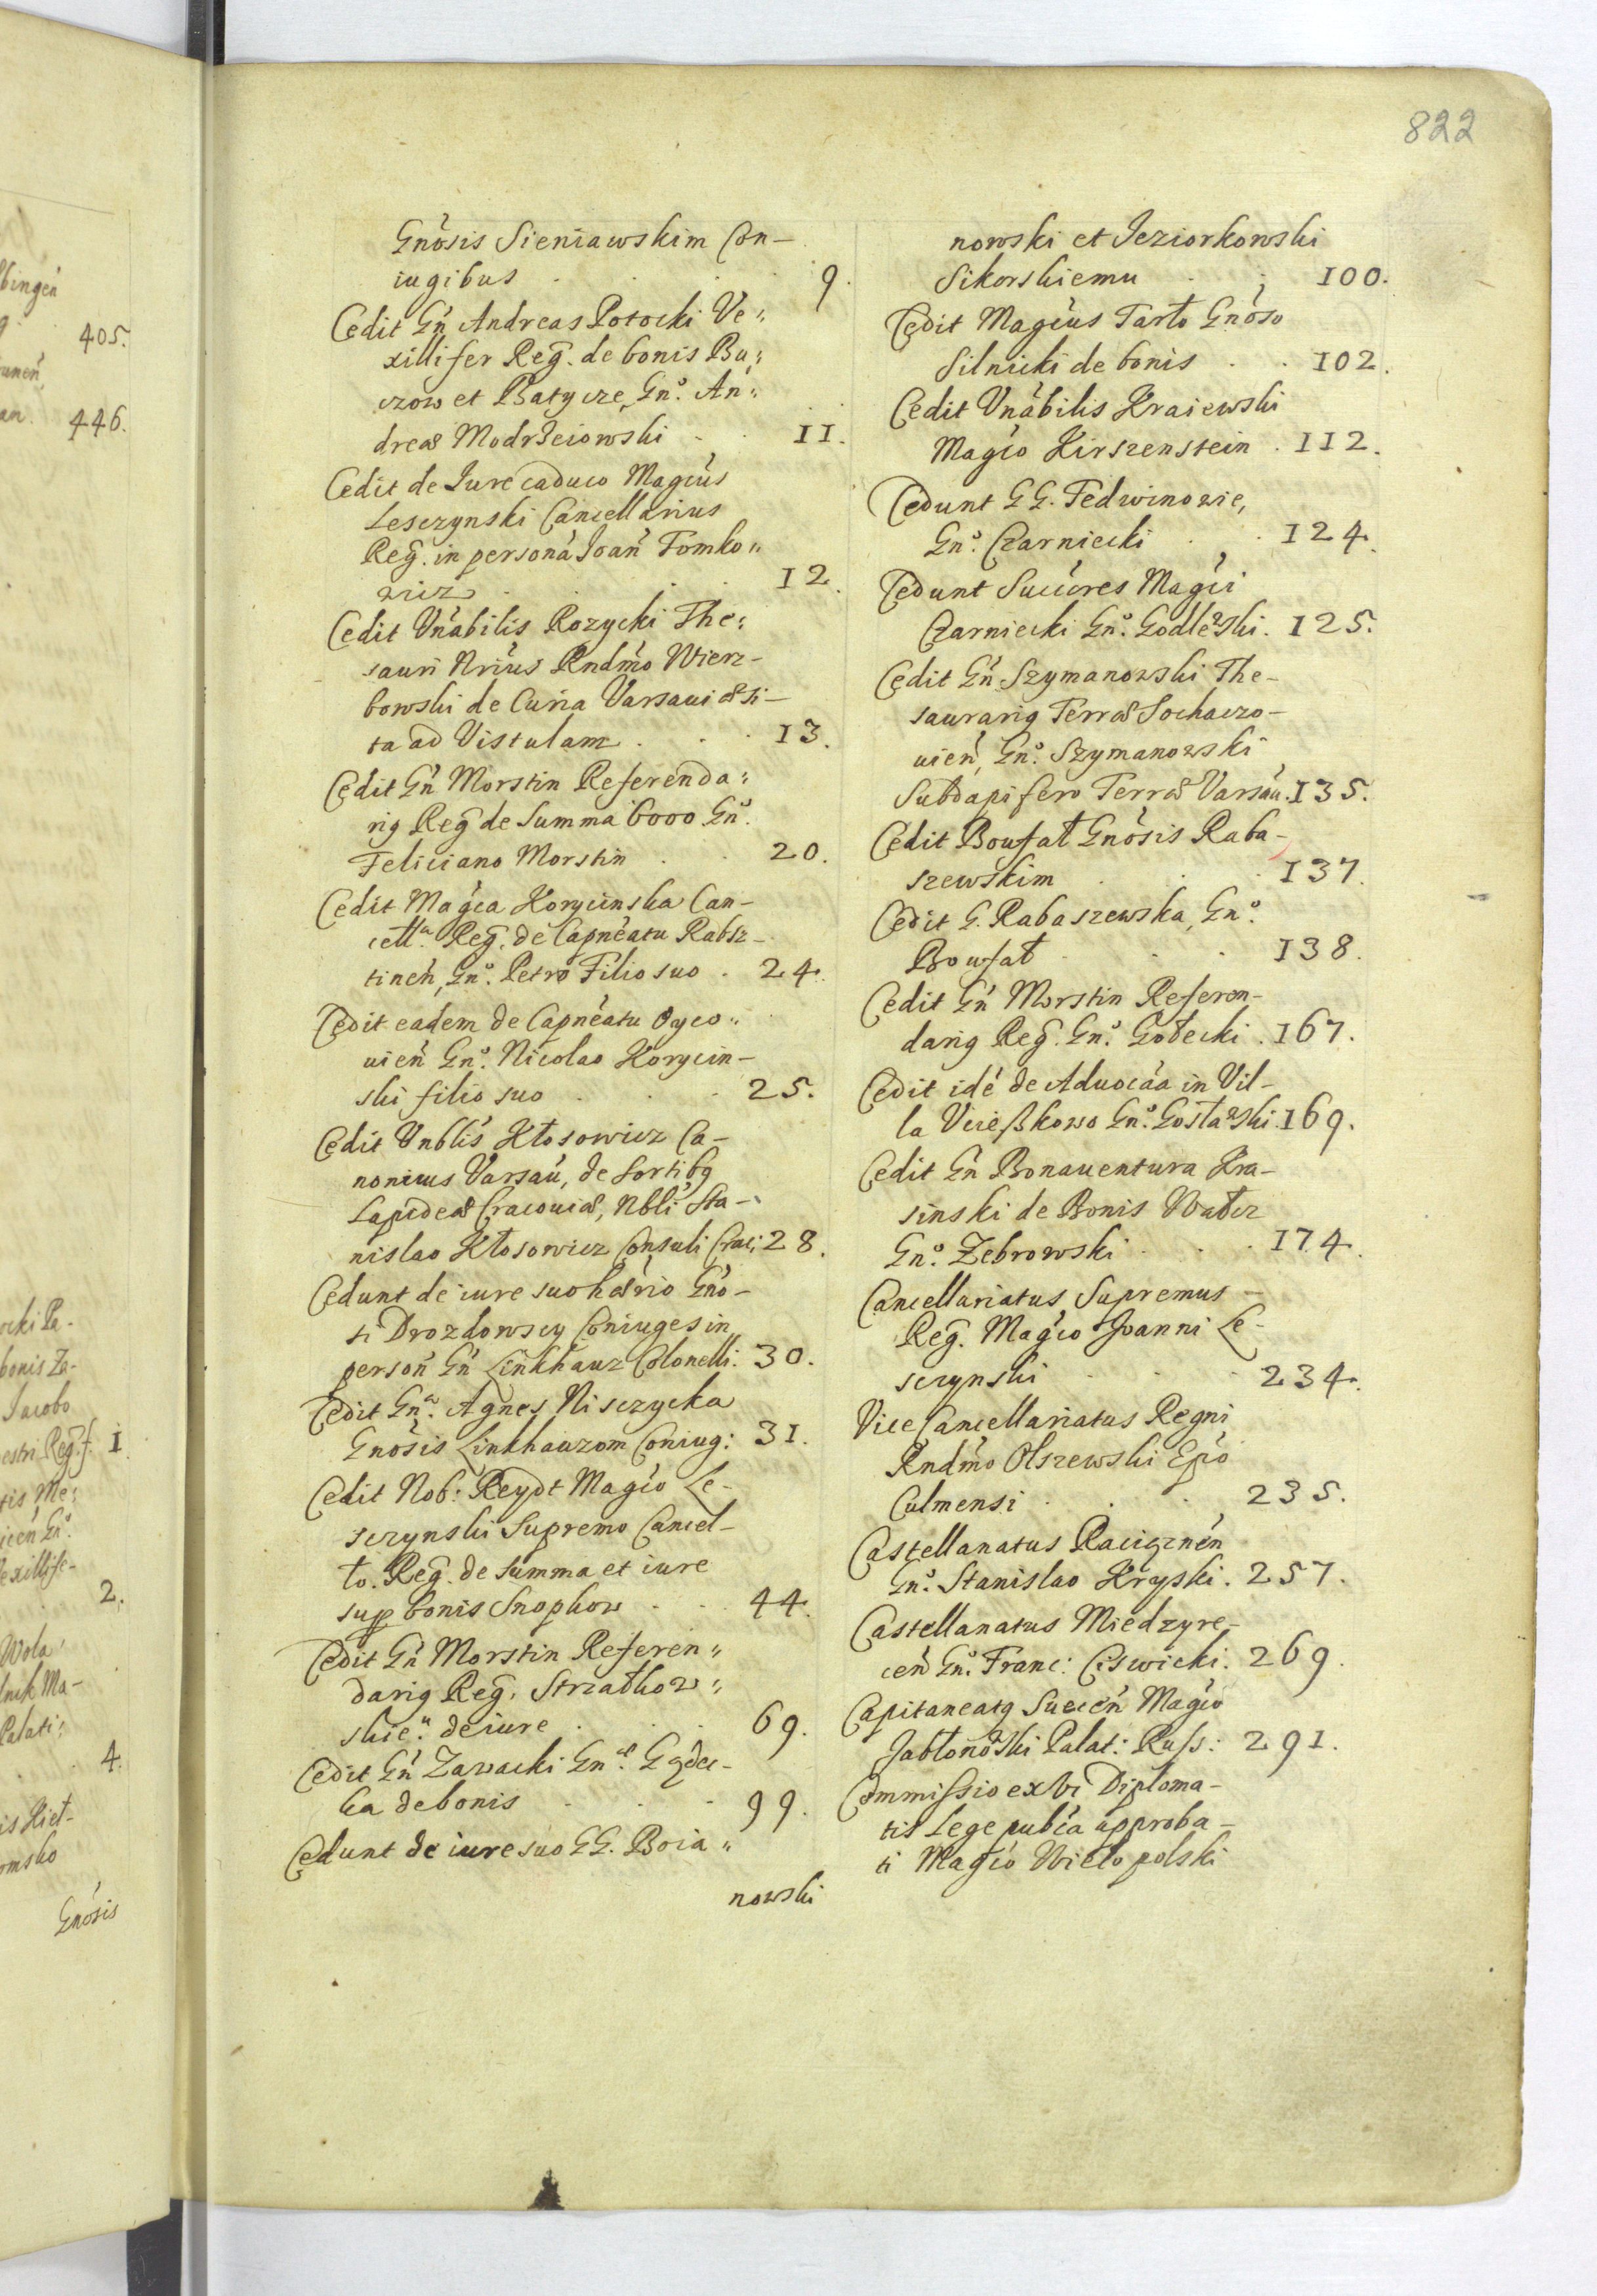 822
Gnôsis Sieniawskim Con-
iugibus . . . 9.
Cedit Gn̄ Andreas Potocki Ve„
xillifer Reg. de bonis Bu„
czow et Batycze, Gn.° An„
dreæ Modrzeiowski . . 11.
Cedit de Iure caduco Magcus
Lesczynski Cancellarius
Reg. in persona Joan̄ Tomko„
wicz . . . 12.
Cedit Vnabilis Rozycki The„
sauri Nrius Rndmo Wierz-
bowski de Curia Varsauiæ si-
ta ad Vistulam . . . 13.
Cedit Gn̄ Morstin Referenda„
rig Reg de Summa 6000 Gn.°
Feliciano Morstin . . 20.
Cedit Magca Korycinska Can-
cell.ª Reg. de Capneatu Rabsz-
tinen̄, Gn.° Petro Filio suo . 24.
Cedit eadem de Capneatu Oyco„
uien̄ Gn.° Nicolao Korycin-
ski filio suo . . . 25.
Cedit Vnblis Kłosowicz Ca-
nonicus Varsau, de sortibg
Lapideæ Cracouiæ, Nbli Sta-
nislao Kłosowicz Consuli Crac: 28.
Cedunt de iure suo hærio Gno-
si Drozdowscy Coniuges in
person̄ Gn̄ Linkhauz Colonelli. 30.
Cedit Gn.ª Agnes Nisczycka
Gnosis Linkhauzom Coniug: 31.
Cedit Nob: Reydt Magco Le-
sczynski Supremo Cancel-
lo. Reg. de Summa et iure
sup bonis Snopkow . . 44.
Cedit Gn̄ Morstin Referen„
darig Reg. Strzałkow„
skie.u de iure . . . 69.
Cedit Gn̄ Zawacki Gn.æ
ka de bonis . . . 99.
Cedunt de iure suo GG. Boia„
nowski
nowski et Jeziorkowski
Sikorskiemu . . 100.
Cedit Magcus Tarło Gnoso
Silnicki de bonis . . 102.
Cedit Vnabilis Kraiewski
Magco Kirszenstein . 112.
Cedunt GG. Fedwinowie,
Gn.° Czarniecki . . 124.
Cedunt Succores Magci
Czarniecki Gn.° Godlewski. 125.
Cedit Gn̄ Szymanowski The-
saurarig Terræ Sochaczo-
uien̄, Gn.° Szymanowski
Subdapifero Terræ Varsau. 135.
Cedit Boufał Gnosis Raba-
szewskim . . . 137.
Cedit G. Rabaszewska, Gn.°
Boufał . . . 138.
Cedit Gn̄ Morstin Referen-
darig Reg. Gn.° Gołecki . 167.
Cedit idē de Aduocaa in Vil-
la Gn.° Gosławski. 169.
Cedit Gn̄ Bonauentura Kra-
sinski de Bonis Wałcz
Gn.° Zebrowski . . . 174.
Cancellariatus Supremus -
Reg. Magco Joanni Le-
sczynski . . . 234.
Vice Cancellariatus Regni
Rndmo Olszewski Epo
Culmensi . . . 235.
Castellanatus Raciąznen̄
Gn.° Stanislao Kryski. 257.
Castellanatus Miedzyre-
cen̄ Gn.° Franc: Ciswicki. 269.
Capitaneatg Suecen̄ Magco
Jabłonowski Palat: Russ: 291.
Commissio ex vi Diploma-
tis Lege publca approba-
ti Magco Wielopolski
405.
446.
Jacobo
1.
2.
Wola
4.
Gnosis